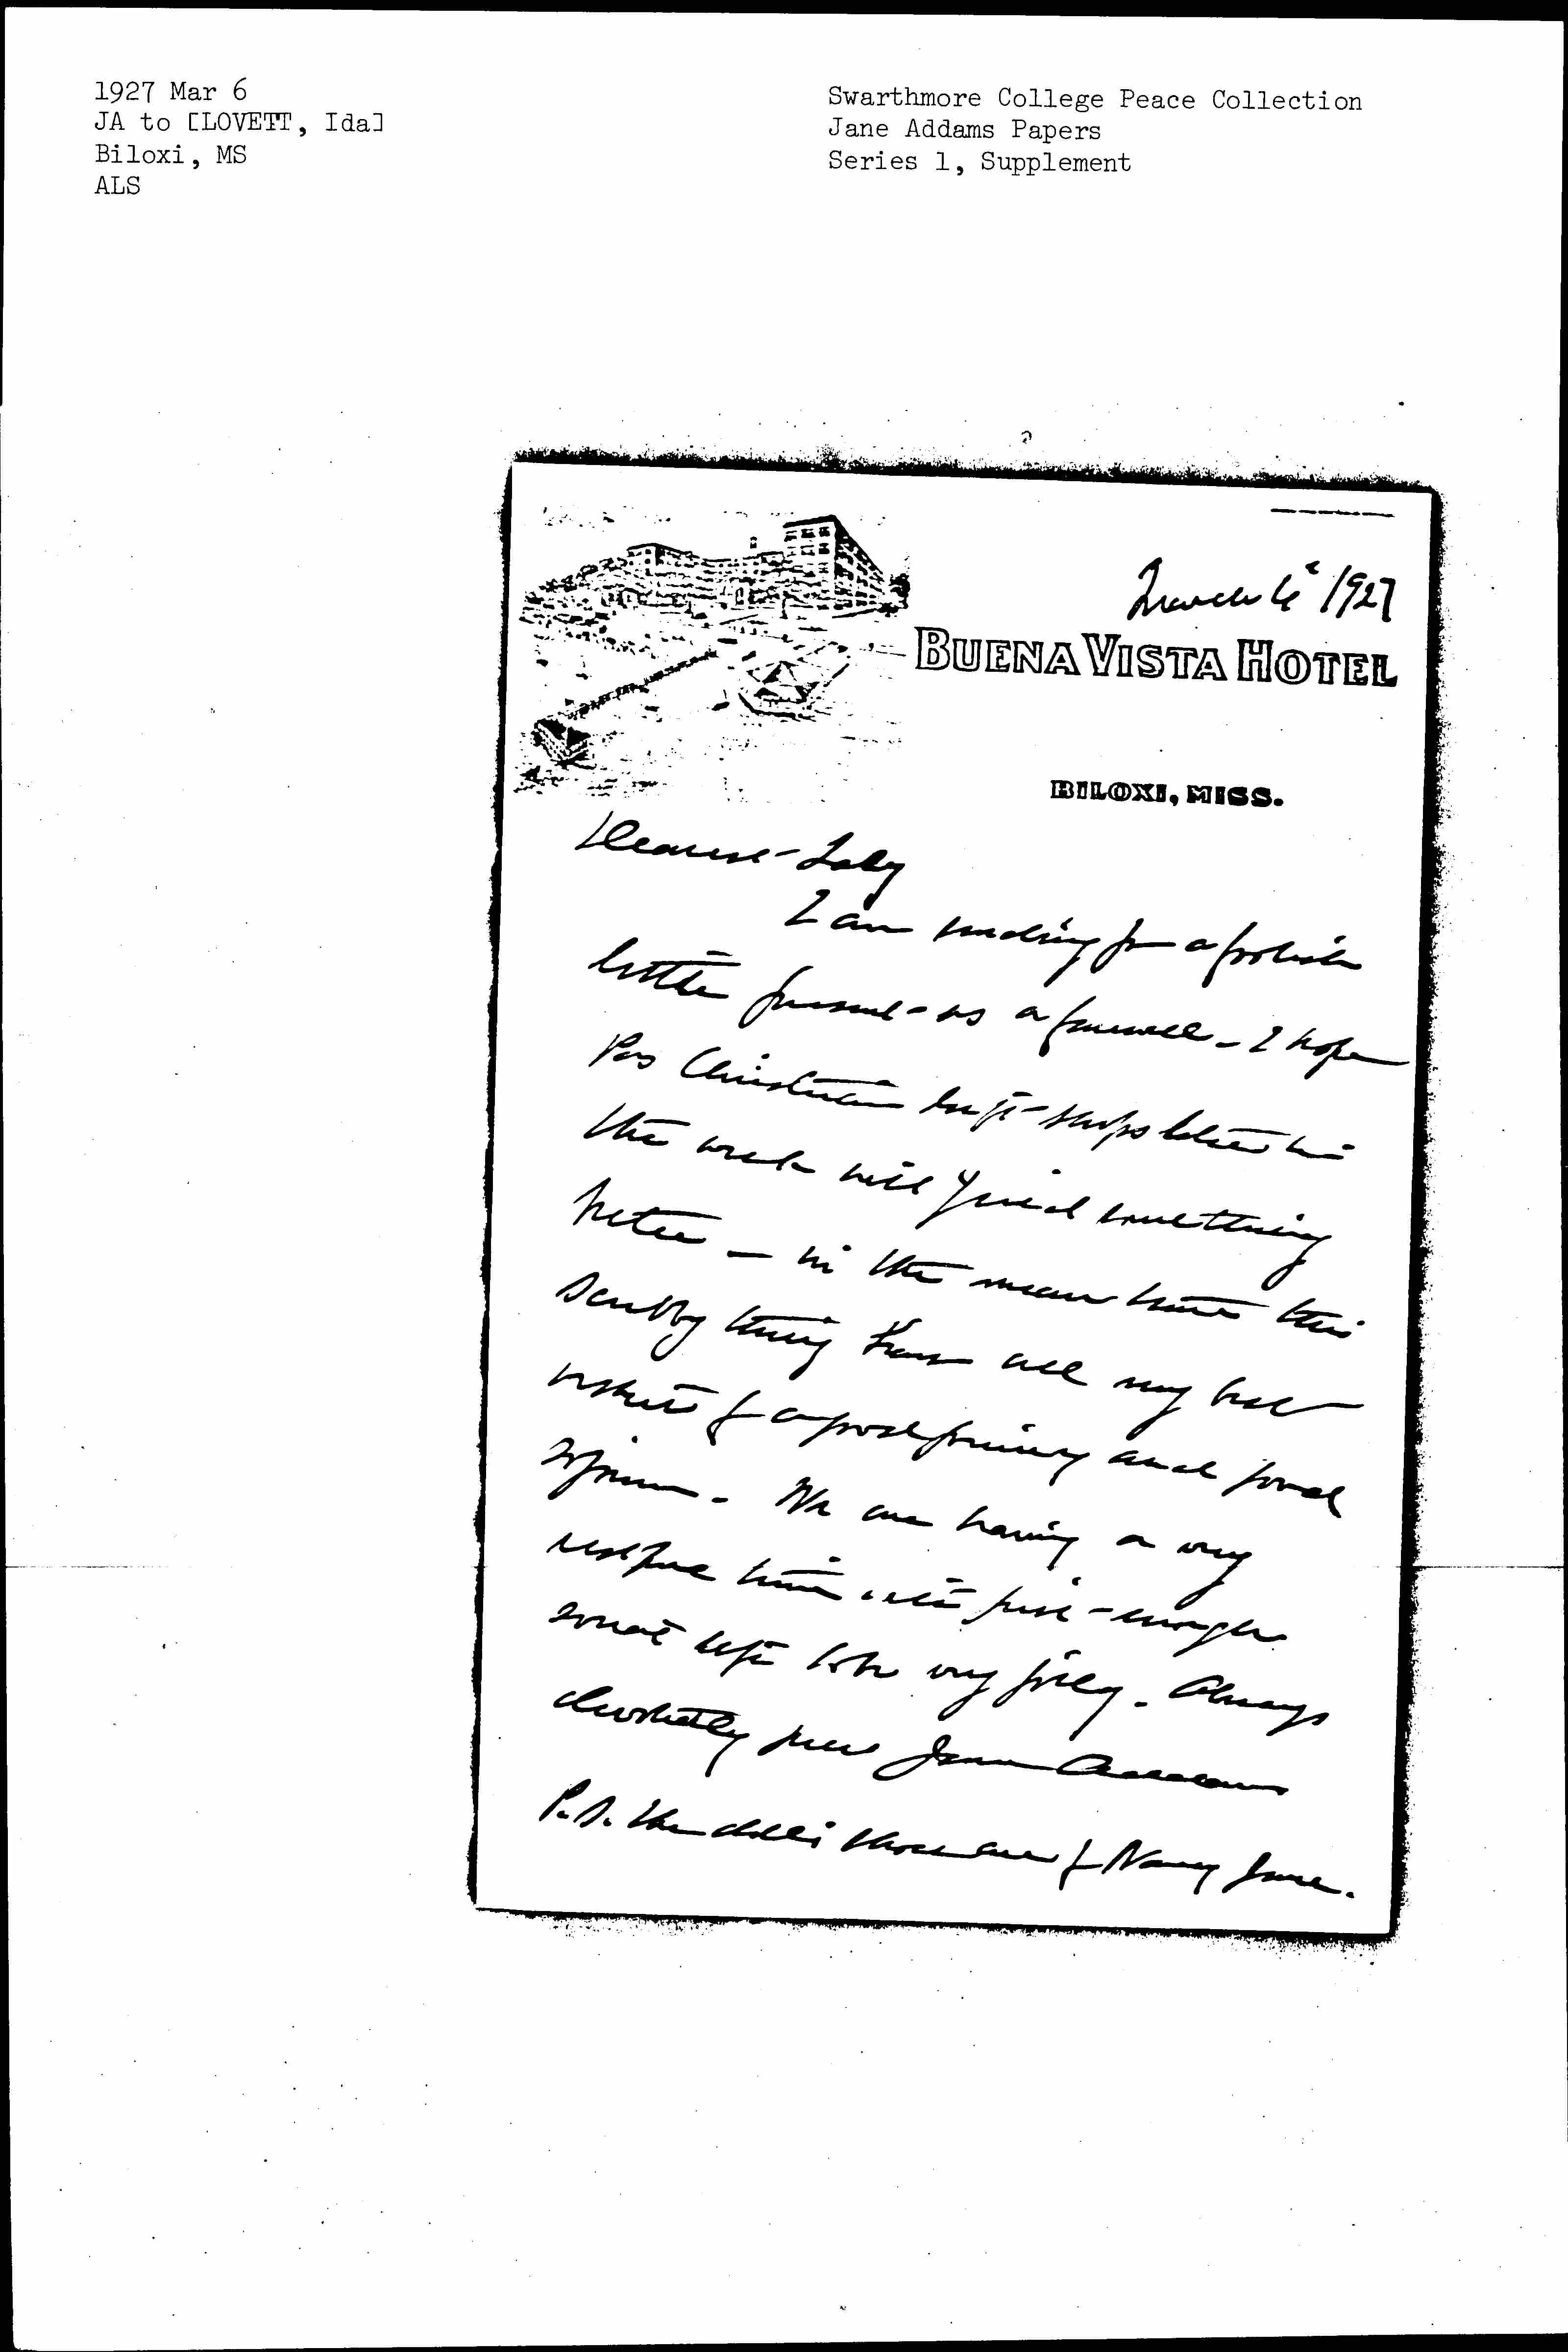 1927 Mar 6
JA to [LOVETT, Ida]
Biloxi, MS
ALS
Swarthmore College Peace Collection
Jane Addams Papers
Series 1, Supplement
March 6" 1927
BUENA VISTA HOTEL
BILOXI, MISS.
Dearest Lady
I am sending for a foolish
little present as a farewell - I hope
Pas Christian gift-shops later in
the week will yield something
better - in the mean time this
scrubby thing has all my best
wishes for a good journey and good
sojourn. We are having a very
restful time with just enough
to be very jolly. Always
devotedly yours Jane Addams
P.S. The are for Nancy Jane.